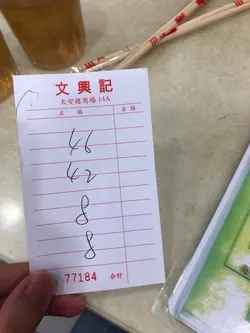 文興記
太安樓商場 14A
名 稱 金 銀
46
42
8
8
77184 合計